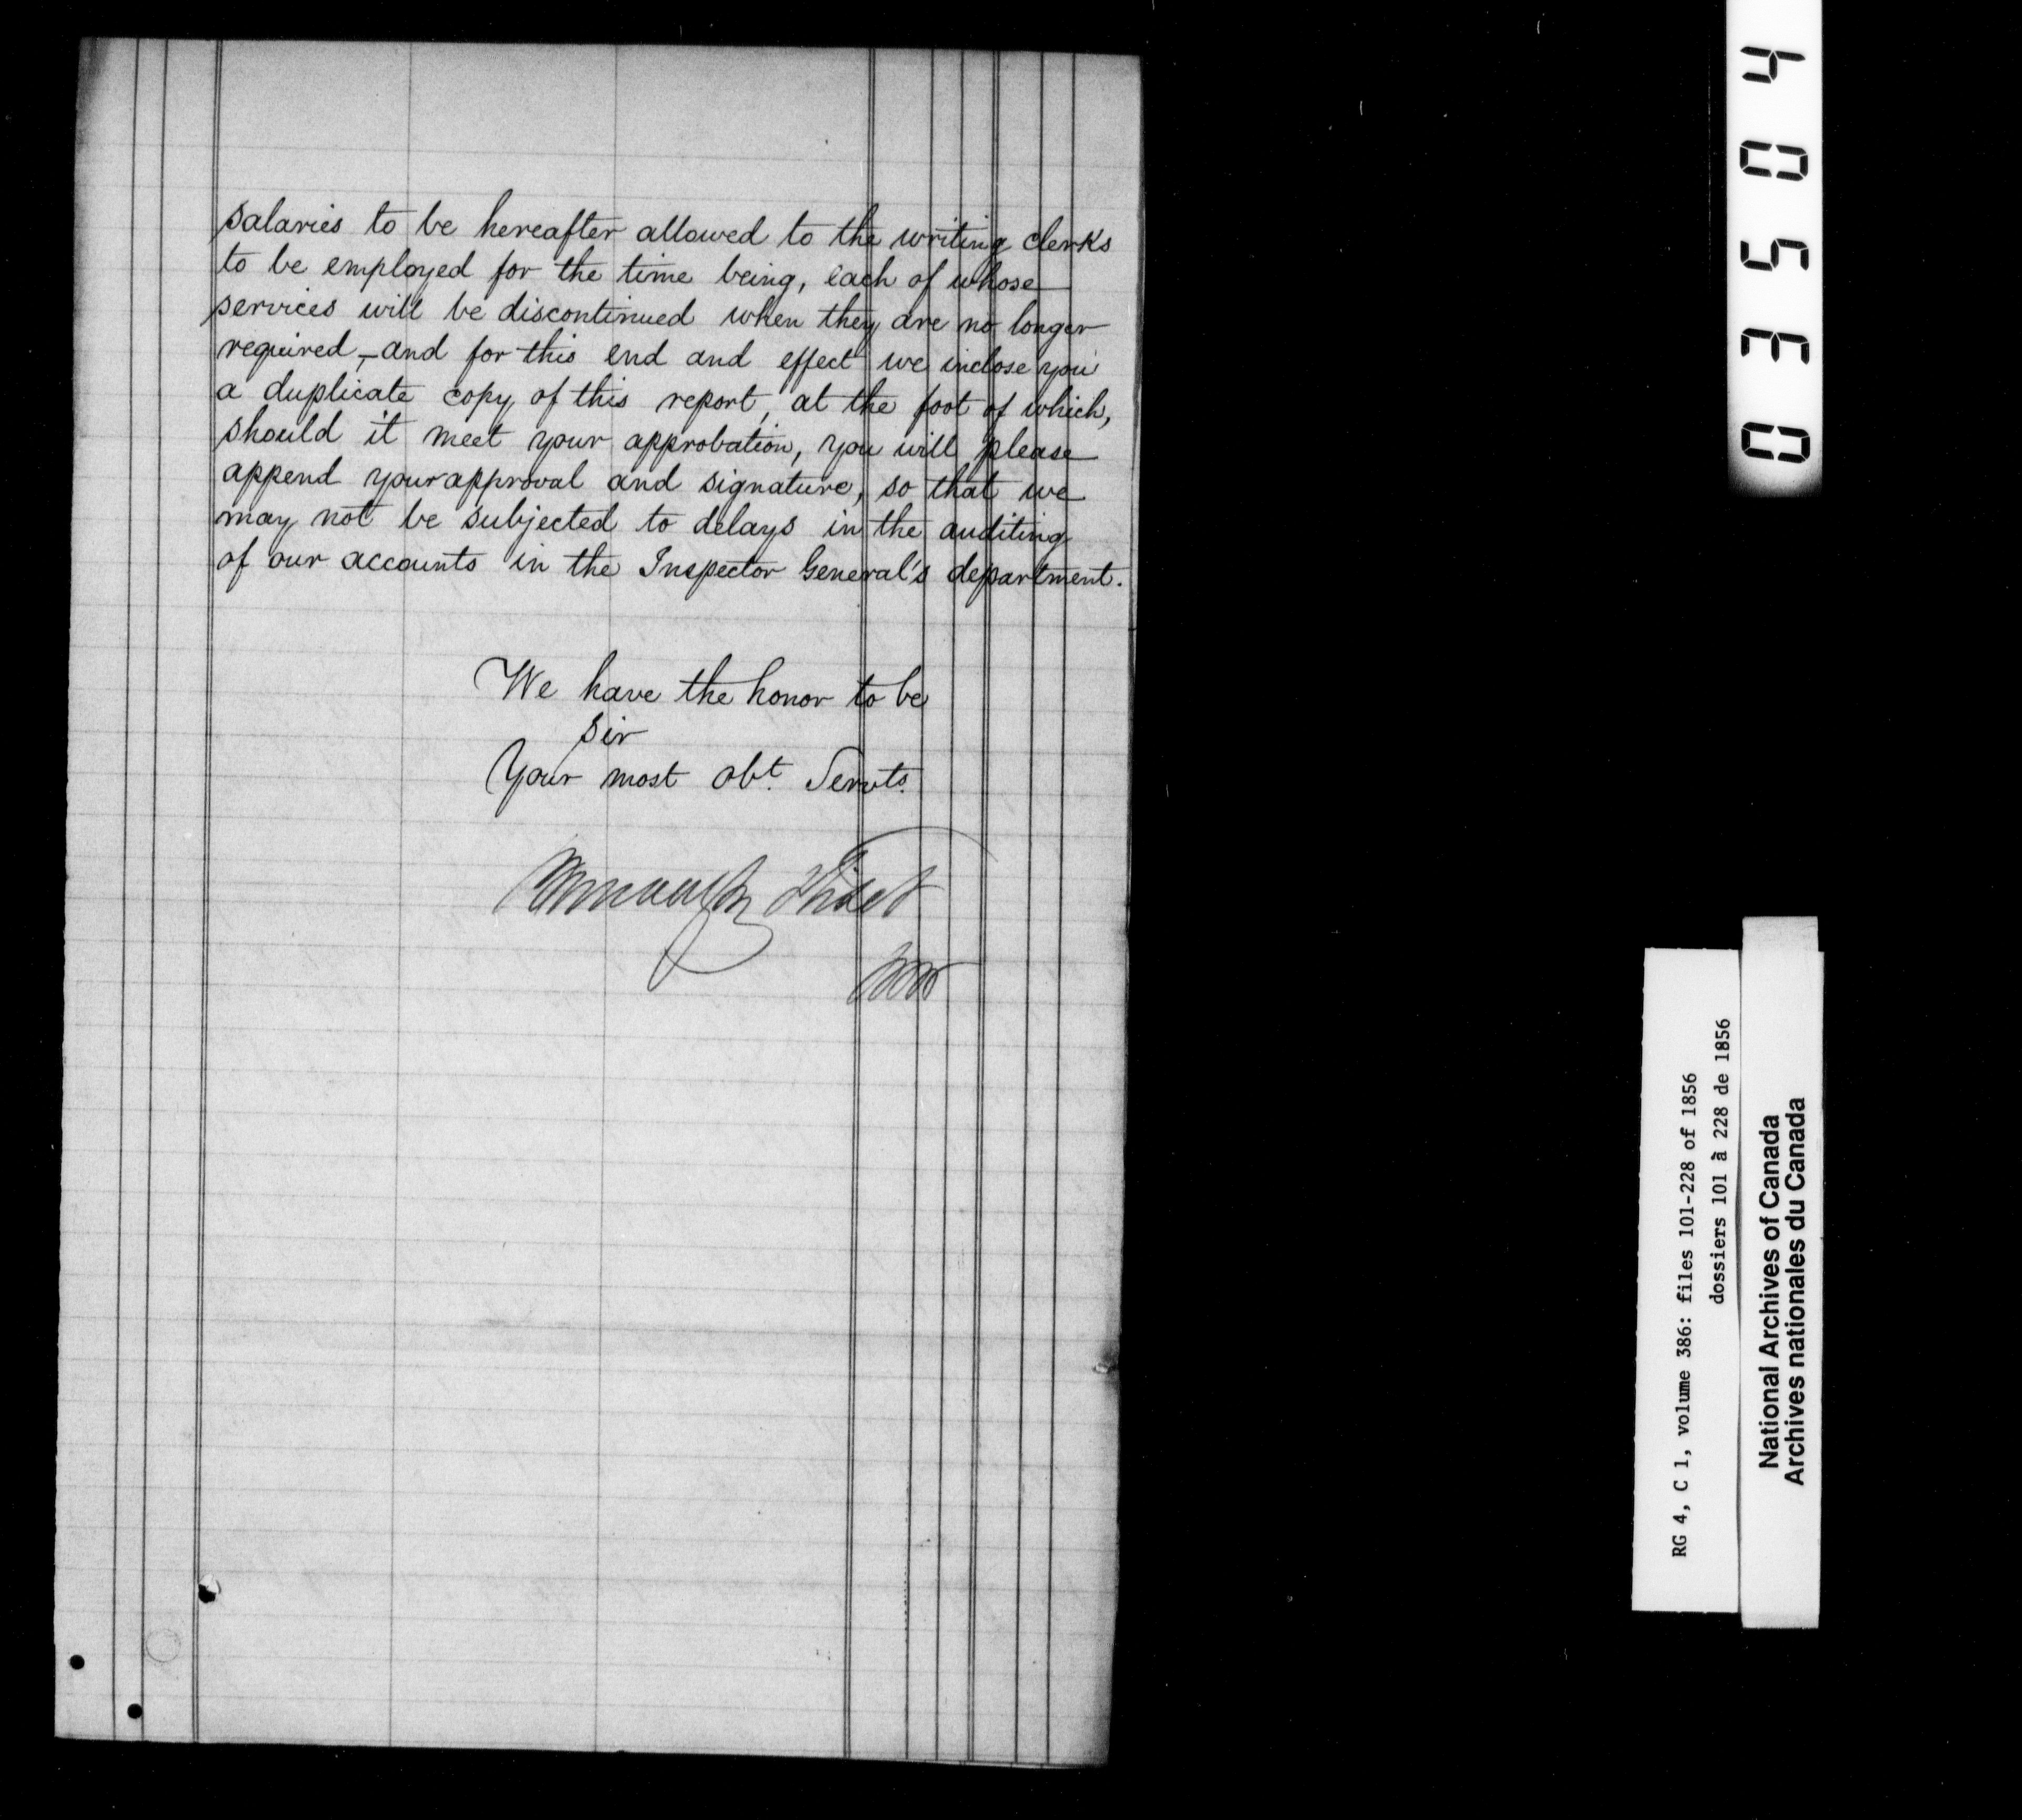 salaries to be hereafter allowed to the writing clerks
to be employed for the time being, each of whose
services will be discontinued when they are no longer
required, – and for this end and effect we inclose you
a duplicate copy of this report, at the foot of which,
should it meet your approbation, you will please
append your approval and signature, so that we
may not be subjected to delays in the auditing
of our accounts in the Inspector General's department.
We have the honor to be
Sir
Your most obt. Servts.
03504
RG 4, C 1, volume 386: files 101-228 of 1856
dossiers 101 à 228 de 1856
National Archives of Canada
Archives nationales du Canada